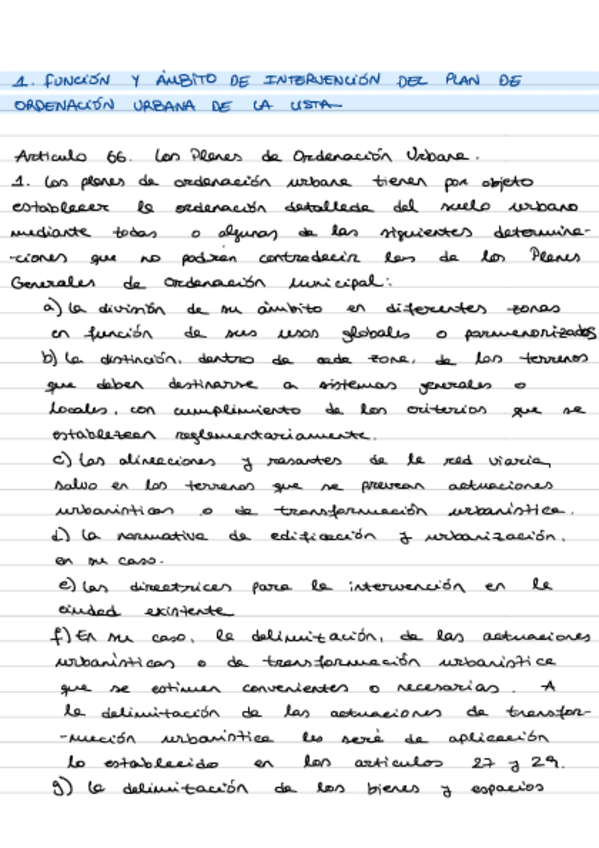 1. FUNCIÓN Y ÁMBITO DE INTERVENCIÓN DEL PLAN DE
ORDENACIÓN URBANA DE LA LISTA
Artículo 66. Los Planes de Ordenación Urbana.
1. Los planes de ordenación urbana tienen por objeto
establecer la ordenación detallada del suelo urbano
mediante todas o algunas de las siguientes determina-
-ciones que no podrán contradecir las de los Planes
Generales de Ordenación Municipal:
a) La división de su ámbito en diferentes zonas
en función de sus usos globales o pormenorizados
b) La distinción, dentro de cada zona, de los terrenos
que deben destinarse a sistemas generales o
locales, con cumplimiento de los criterios que se
establezcan reglamentariamente.
c) Las alineaciones y rasantes de la red viaria,
salvo en los terrenos que se prevean actuaciones
urbanísticas o de transformación urbanística.
d) La normativa de edificación y urbanización,
en su caso.
e) Las directrices para la intervención en la
ciudad existente
f) En su caso, la delimitación, de las actuaciones
urbanísticas o de transformación urbanística
que se estimen convenientes o necesarias. A
la delimitación de las actuaciones de transfor-
-mación urbanística les será de aplicación
lo establecido en los artículos 27 y 29.
g) La delimitación de los bienes y espacios